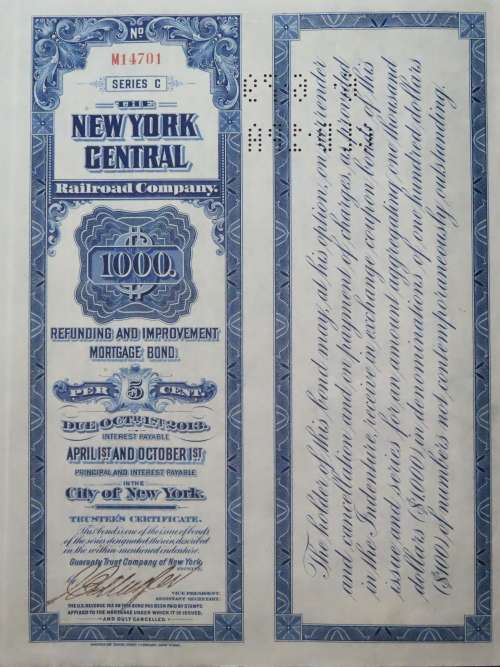 No
M14701
SERIES C
THE
NEW YORK
CENTRAL
Railroad Company.
1000.
REFUNDING AND IMPROVEMENT
MORTGAGE BOND.
PER 5 CENT.
DUE OCTR. 1ST 2013.
INTEREST PAYABLE
APRIL 1ST AND OCTOBER 1ST
PRINCIPAL AND INTEREST PAYABLE
IN THE
City of New York.
TRUSTEE'S CERTIFICATE.
This bond is one of the issue of bonds
of the series designated therein, described
in the within-mentioned indenture.
Guaranty Trust Company of New York,
VICE PRESIDENT.
ASSISTANT SECRETARY.
THE U.S. REVENUE TAX ON THIS BOND HAS BEEN PAID BY STAMPS
AFFIXED TO THE MORTGAGE UNDER WHICH IT IS ISSUED,
AND DULY CANCELLED
The holder of this bond may, at his option, on surrender
and cancellation, and on payment of charges, as provided
in the Indenture, receive in exchange coupon bonds of this
issue and series for an amount aggregating one thousand
dollars ($1000) in denominations of one hundred dollars
($100) of numbers not contemporaneously outstanding.